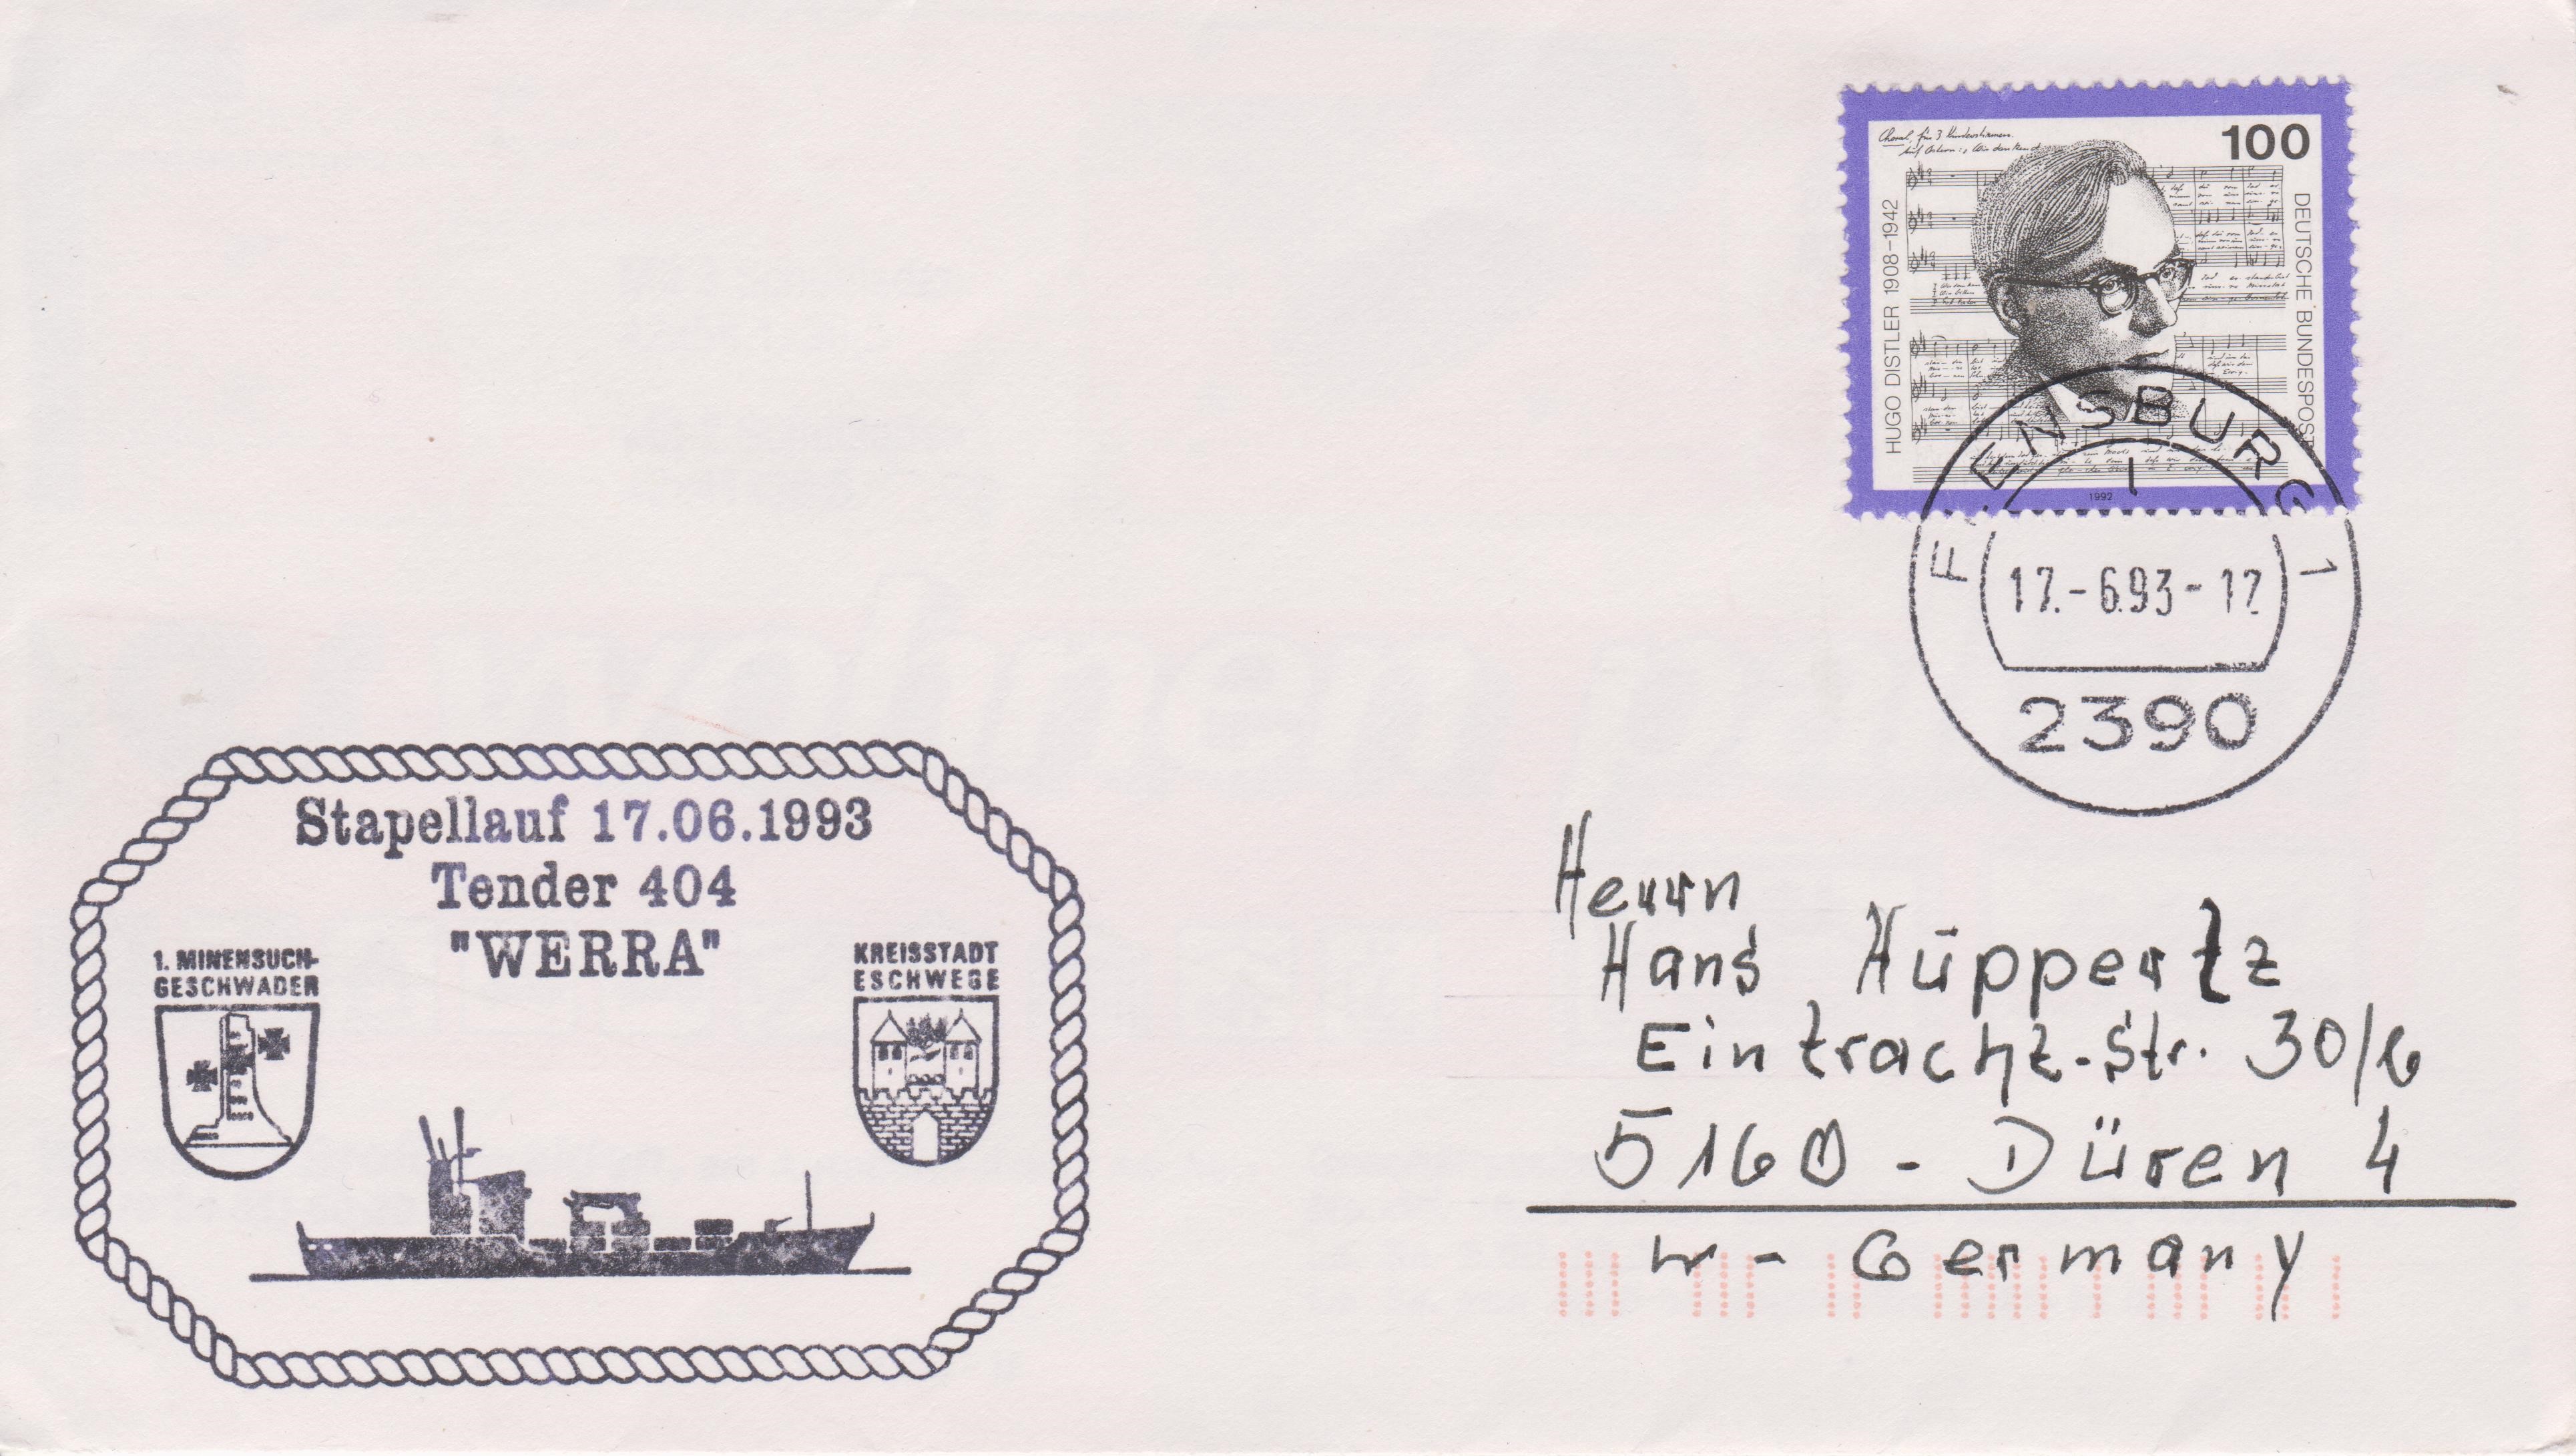 100
HUGO DISTLER 1908–1942
DEUTSCHE BUNDESPOST
1992
FLENSBURG 1
17.-6.93-17
2390
Stapellauf 17.06.1993
Tender 404
"WERRA"
1. MINENSUCH-
GESCHWADER
KREISSTADT
ESCHWEGE
Herrn
Hans Hüppertz
Eintracht-Str. 30/6
5160 - Düren 4
W - Germany